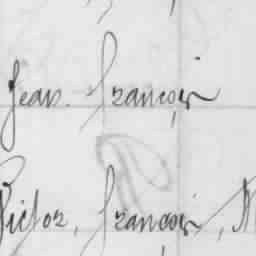 Jean. François
Victor, François,